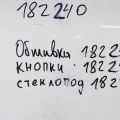 182240
Обшивка 1822
кнопки · 1822
стеклопод 182